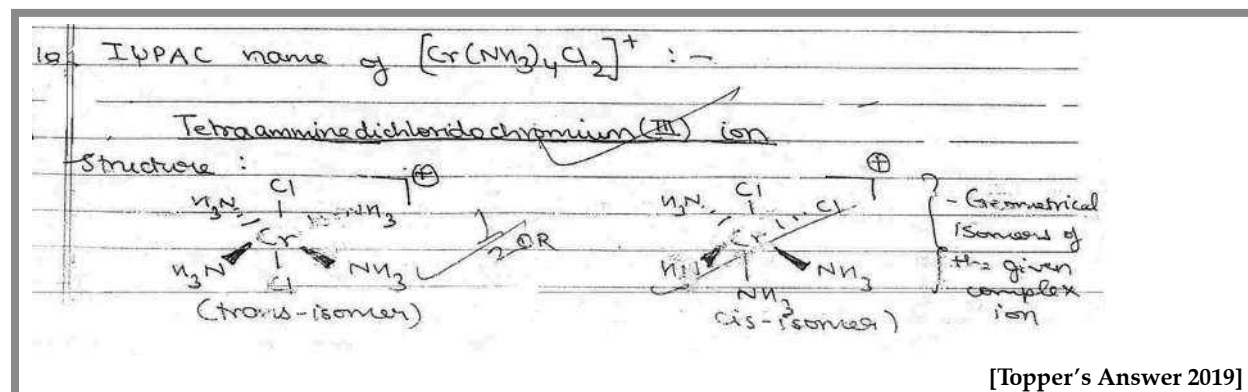 19. IUPAC name of [Cr(NH3)4Cl2]+ :-
Tetraamminedichloridochromium(III) ion
Structure :
Cl
H3N NH3
Cr
H3N NH3
Cl
(trans-isomer)
OR
+
Cl
H3N Cl
Cr
NH3
NH3
cis-isomer)
+
- Geometrical
isomers of
the given
complex
ion
[Topper's Answer 2019]